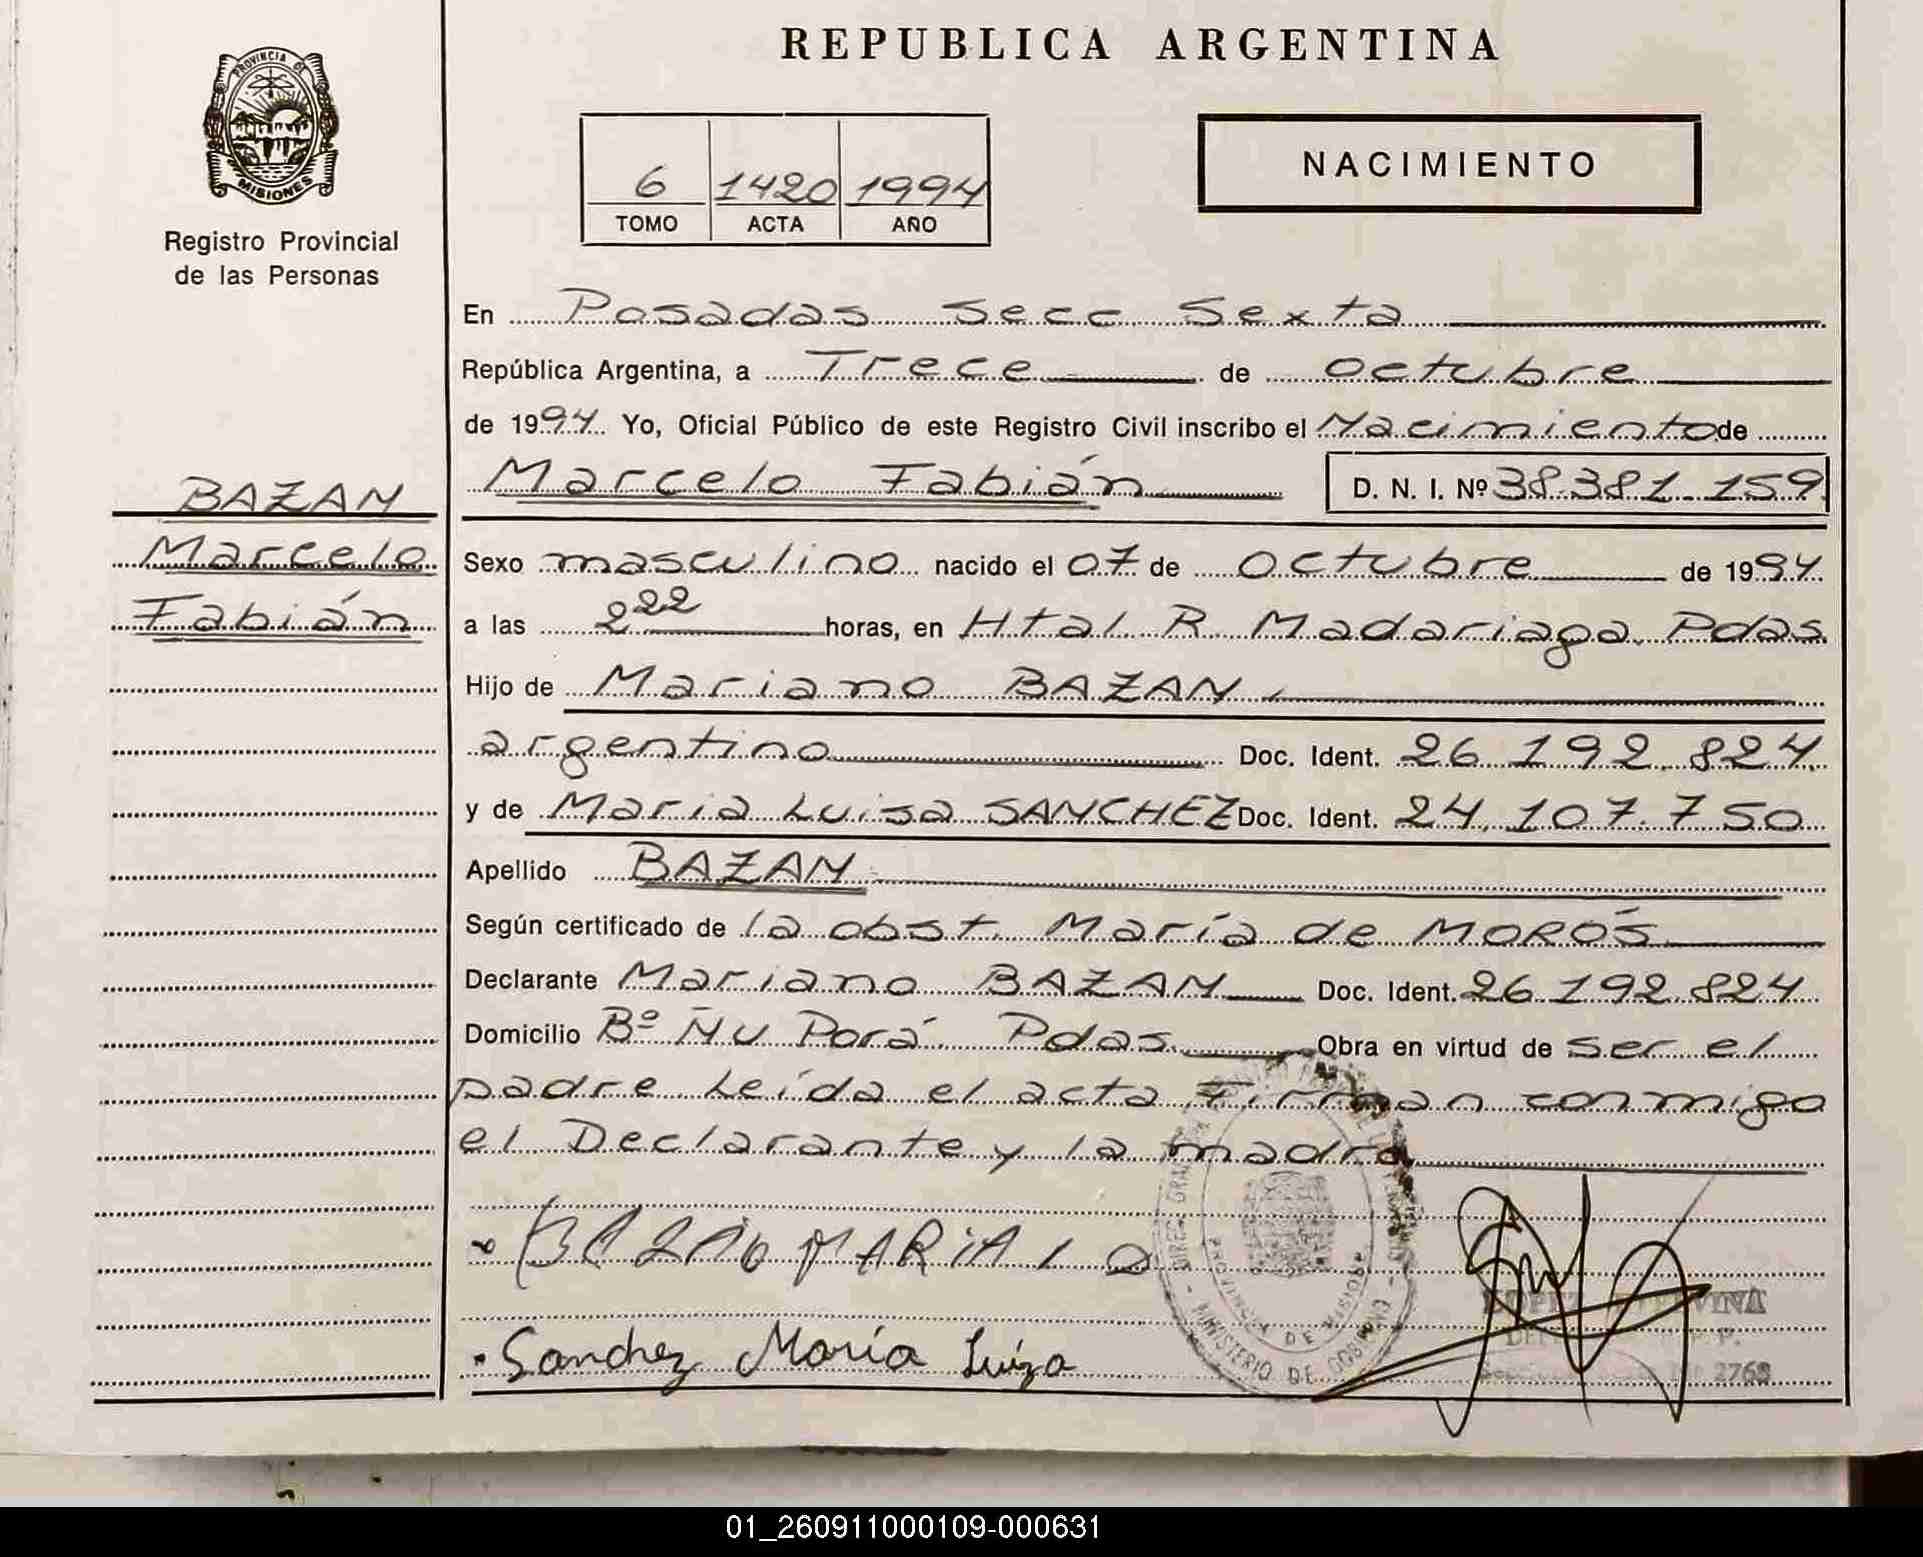 REPUBLICA ARGENTINA
PROVINCIA DE
MISIONES
Registro Provincial
de las Personas
6 1420 1994
TOMO ACTA AÑO
NACIMIENTO
En Posadas Secc Sexta
República Argentina, a Trece de octubre
de 1994 Yo, Oficial Público de este Registro Civil inscribo el Nacimiento de
Marcelo Fabián D. N. I. Nº 38.381.159
BAZAN
Marcelo
Fabián
Sexo masculino nacido el 07 de octubre de 1994
a las 2 22 horas, en Htal R. Madariaga. Pdas.
Hijo de Mariano BAZAN,
argentino Doc. Ident. 26.192.824.
y de Maria Luisa SANCHEZ Doc. Ident. 24.107.750
Apellido BAZAN
Según certificado de la obst. María de MORÓS
Declarante Mariano BAZAN Doc. Ident. 26.192.824
Domicilio Bº Ñu Porá. Pdas. Obra en virtud de ser el
padre Leída el acta Firman conmigo
el Declarante y la madre
MINISTERIO DE GOBIERNO
PROVINCIA DE MISIONES
Sanchez María Luiza
2768
01_260911000109-000631